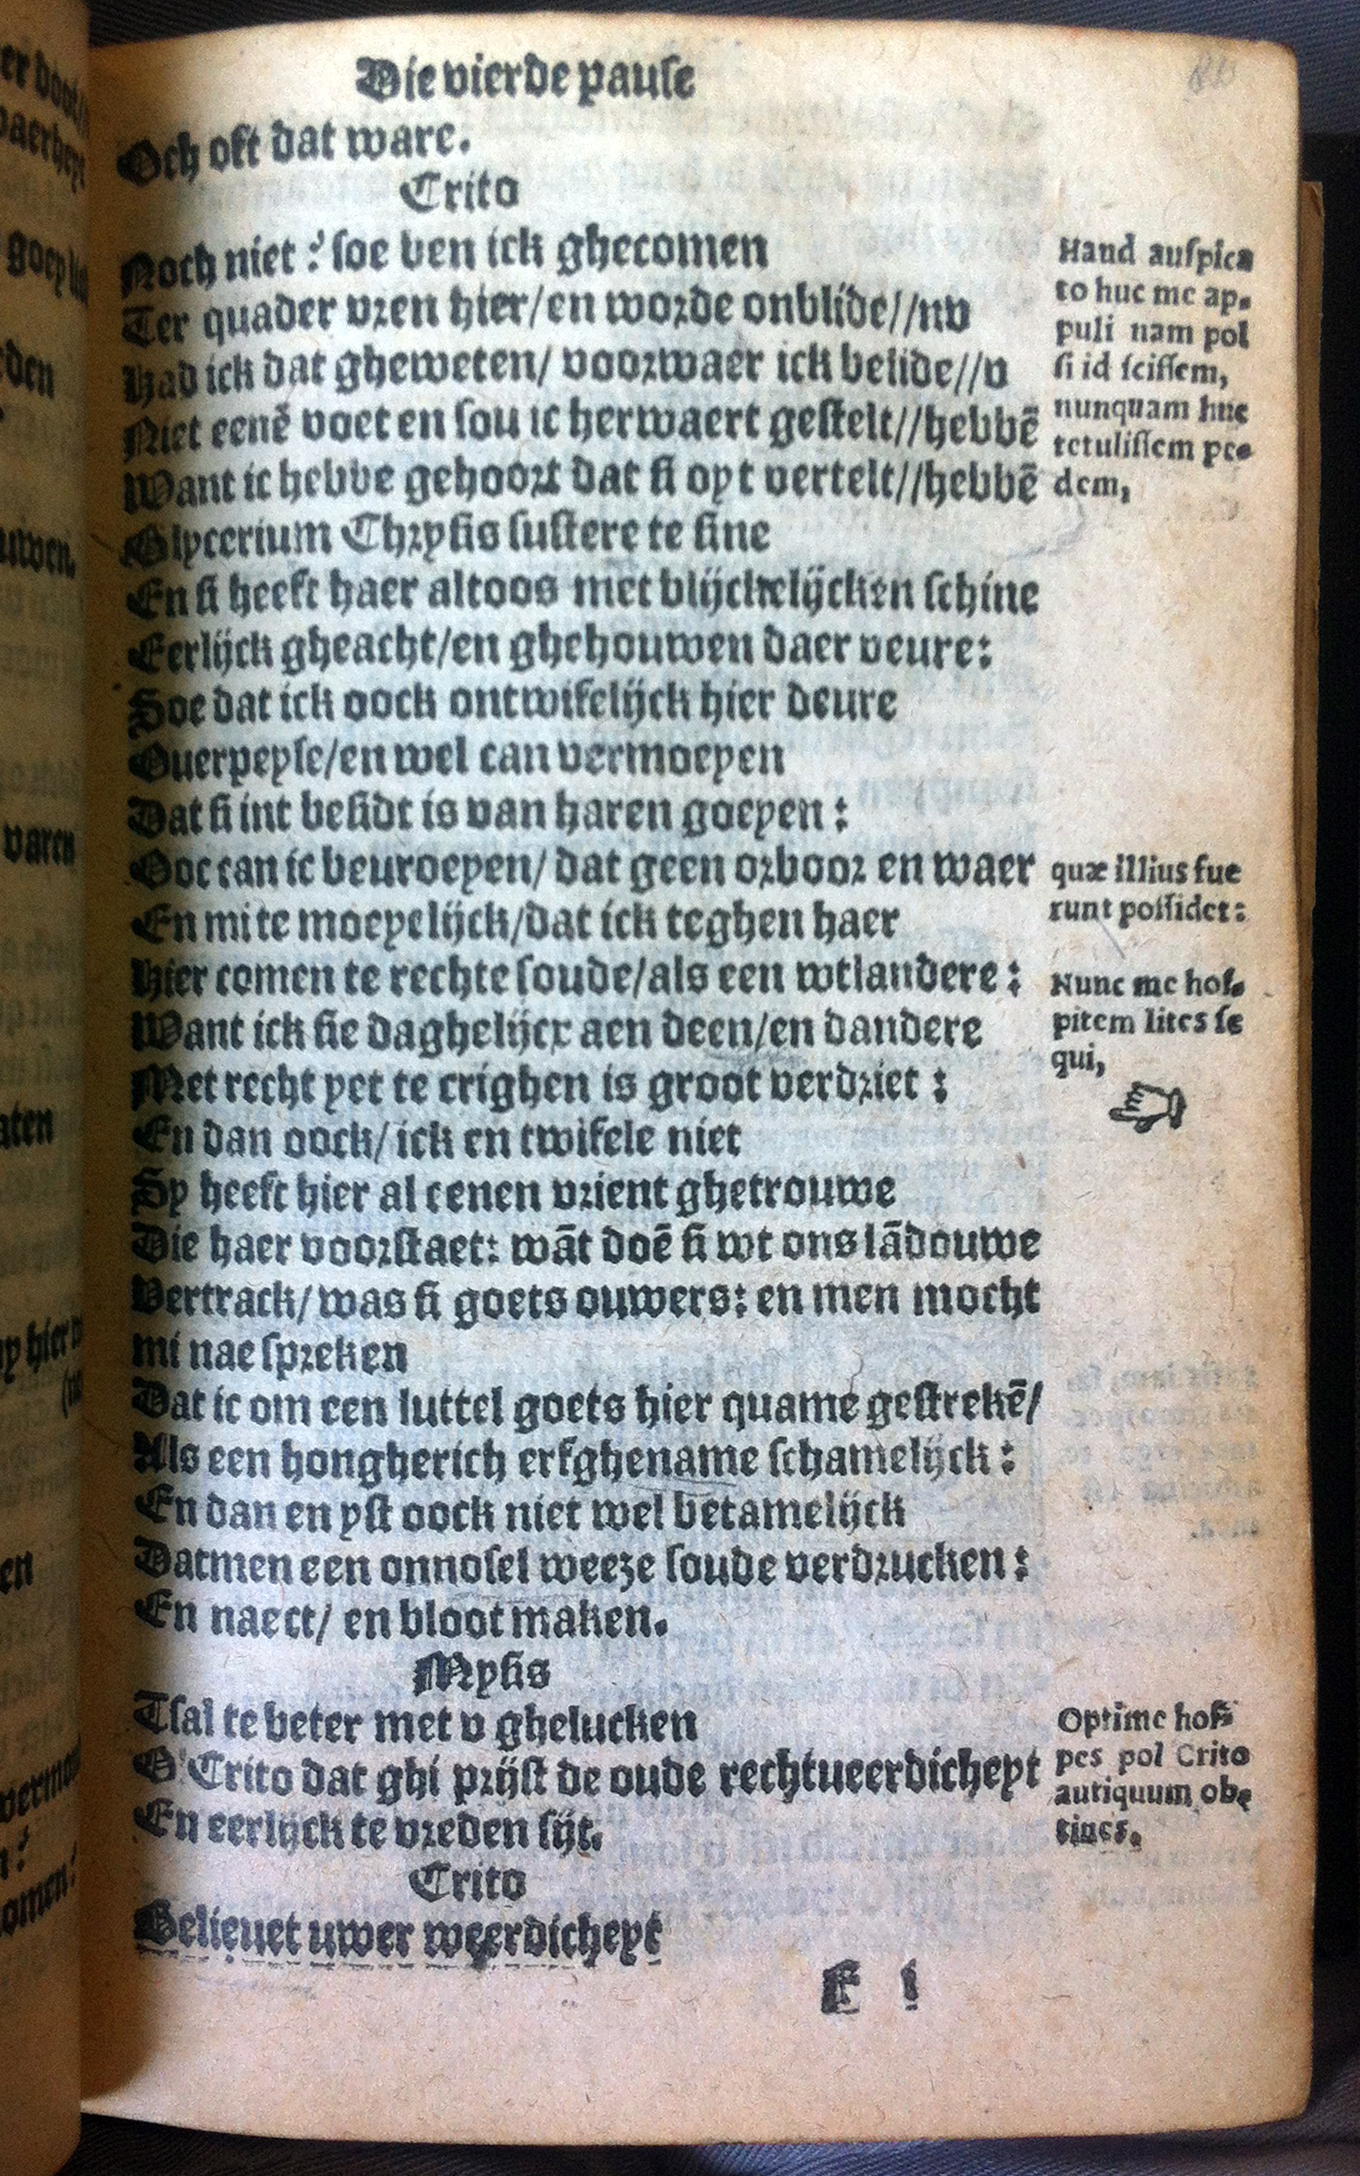 Die vierde pause
Och oft dat ware.
Crito
Noch niet? soe ben ick ghecomen
Ter quader vren hier/en worde onblide//nv
Had ick dat gheweten/ voorwaer ick belide//v
Niet eenē voet en sou ic herwaert gestelt//hebbē
Want ic hebbe gehoort dat si opt vertelt//hebbē
Glycerium Chrysis sustere te sine
En si heeft haer altoos met blijckelijcken schine
Eerlijck gheacht/en ghehouwen daer veure:
Soe dat ick oock ontwifelijck hier deure
Ouerpeyse/en wel can vermoeyen
Dat si int besidt is van haren goeyen:
Ooc can ic beuroeyen/ dat geen orboor en waer
En mi te moeyelijck/dat ick teghen haer
Hier comen te rechte soude/als een wtlandere:
Want ick sie daghelijcx aen deen/en dandere
Met recht yet te crighen is groot verdriet:
En dan oock/ ick en twifele niet
Sy heeft hier al eenen vrient ghetrouwe
Die haer voorstaet: wāt doē si wt ons lādouwe
Vertrack/ was si goets ouwers: en men mocht
mi nae spreken
Dat ic om een luttel goets hier quame gestrekē/
Als een hongherich erfghename schamelijck:
En dan en yst oock niet wel betamelijck
Datmen een onnosel weeze soude verdrucken:
En naect/ en bloot maken.
Mysis
Tsal te beter met v ghelucken
O Crito dat ghi prijst de oude rechtueerdicheyt
En eerlijck te vreden sijt.
Crito
Belieuet uwer weerdicheyt
F i
Haud auspica
to huc me ap-
puli nam pol
si id scissem,
nunquam huc
tetulissem pe-
dem,
quæ illius fue
runt possidet:
Nunc me hos-
pitem lites se
qui,
Optime hos-
pes pol Crito
antiquum ob-
tines.